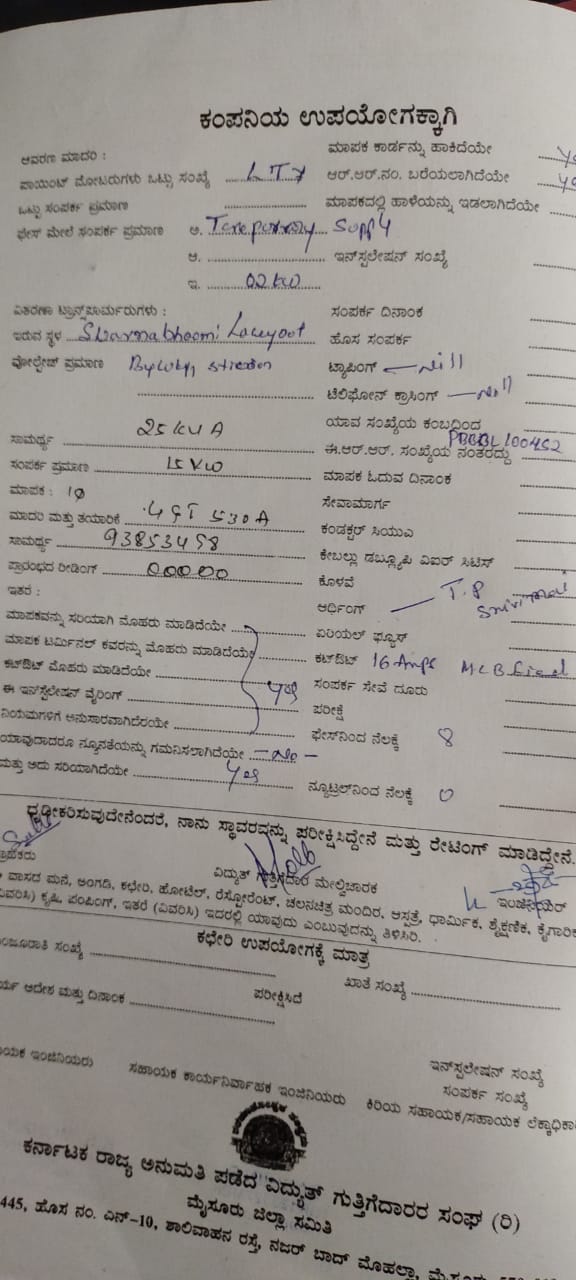 ಕಂಪನಿಯ ಉಪಯೋಗಕ್ಕಾಗಿ
ಆವರಣ ಮಾದರಿ : ಮಾಪಕ ಕಾರ್ಡನ್ನು ಹಾಕಿದೆಯೇ
ಪಾಯಿಂಟ್ ಮೋಟರುಗಳು ಒಟ್ಟು ಸಂಖ್ಯೆ LT7 ಆರ್.ಆರ್.ನಂ. ಬರೆಯಲಾಗಿದೆಯೇ
ಒಟ್ಟು ಸಂಪರ್ಕ ಪ್ರಮಾಣ ಮಾಪಕದಲ್ಲಿ ಹಾಳೆಯನ್ನು ಇಡಲಾಗಿದೆಯೇ
ಫೇಸ್ ಮೇಲೆ ಸಂಪರ್ಕ ಪ್ರಮಾಣ ಅ.
ಆ. ಇನ್‌ಸ್ಟಲೇಷನ್ ಸಂಖ್ಯೆ
ಇ. 02 KW
ವಿತರಣಾ ಟ್ರಾನ್ಸ್‌ಫಾರ್ಮರುಗಳು : ಸಂಪರ್ಕ ದಿನಾಂಕ
ಇರುವ ಸ್ಥಳ ಹೊಸ ಸಂಪರ್ಕ
ವೋಲ್ಟೇಜ್ ಪ್ರಮಾಣ ಟ್ಯಾಪಿಂಗ್ — Nill
ಟೆಲಿಫೋನ್ ಕ್ರಾಸಿಂಗ್ — Nill
25 KVA ಯಾವ ಸಂಖ್ಯೆಯ ಕಂಬದಿಂದ
ಸಾಮರ್ಥ್ಯ ಈ.ಆರ್.ಆರ್. ಸಂಖ್ಯೆಯ ನಂತರದ್ದು
ಸಂಪರ್ಕ ಪ್ರಮಾಣ 15 KW ಮಾಪಕ ಓದುವ ದಿನಾಂಕ
ಮಾಪಕ : 1φ ಸೇವಾಮಾರ್ಗ
ಮಾದರಿ ಮತ್ತು ತಯಾರಿಕೆ ಕಂಡಕ್ಟರ್ ಸಿಯುಎ
ಸಾಮರ್ಥ್ಯ 93853458 ಕೇಬಲ್ಲು ಡಬ್ಲ್ಯೂಪಿ ವಿಐರ್ ಸಿಟಿಸ್
ಪ್ರಾರಂಭದ ರೀಡಿಂಗ್ 00000 ಕೊಳವೆ
ಇತರೆ : ಆರ್ಥಿಂಗ್ —
ಮಾಪಕವನ್ನು ಸರಿಯಾಗಿ ಮೊಹರು ಮಾಡಿದೆಯೇ ಏರಿಯಲ್ ಫ್ಯೂಸ್
ಮಾಪಕ ಟರ್ಮಿನಲ್ ಕವರನ್ನು ಮೊಹರು ಮಾಡಿದೆಯೇ ಕಟ್‌ಔಟ್ 16 Amps MCB
ಕಟ್‌ಔಟ್ ಮೊಹರು ಮಾಡಿದೆಯೇ ಸಂಪರ್ಕ ಸೇವೆ ದೂರು
ಈ ಇನ್‌ಸ್ಟಲೇಷನ್ ವೈರಿಂಗ್ Yes ಪರೀಕ್ಷೆ
ನಿಯಮಗಳಿಗೆ ಅನುಸಾರವಾಗಿದೆಯೇ ಫೇಸ್‌ನಿಂದ ನೆಲಕ್ಕೆ 8
ಯಾವುದಾದರೂ ನ್ಯೂನತೆಯನ್ನು ಗಮನಿಸಲಾಗಿದೆಯೇ — No —
ಮತ್ತು ಅದು ಸರಿಯಾಗಿದೆಯೇ Yes ನ್ಯೂಟ್ರಲ್‌ನಿಂದ ನೆಲಕ್ಕೆ 0
ಧೃಢೀಕರಿಸುವುದೇನೆಂದರೆ, ನಾನು ಸ್ಥಾವರವನ್ನು ಪರೀಕ್ಷಿಸಿದ್ದೇನೆ ಮತ್ತು ರೇಟಿಂಗ್ ಮಾಡಿದ್ದೇನೆ.
ವಿದ್ಯುತ್ ಗುತ್ತಿಗೆದಾರ ಮೇಲ್ವಿಚಾರಕ ಇಂಜಿನಿಯರ್
ವಾಸದ ಮನೆ, ಅಂಗಡಿ, ಕಛೇರಿ, ಹೋಟೆಲ್, ರೆಸ್ಟೋರೆಂಟ್, ಚಲನಚಿತ್ರ ಮಂದಿರ, ಆಸ್ಪತ್ರೆ, ಧಾರ್ಮಿಕ, ಶೈಕ್ಷಣಿಕ,
ಕೃಷಿ, ಪಂಪಿಂಗ್, ಇತರೆ (ವಿವರಿಸಿ) ಇದರಲ್ಲಿ ಯಾವುದು ಎಂಬುವುದನ್ನು ತಿಳಿಸಿರಿ.
ಕಛೇರಿ ಉಪಯೋಗಕ್ಕೆ ಮಾತ್ರ
ಸಂಖ್ಯೆ ಖಾತೆ ಸಂಖ್ಯೆ
ಆದೇಶ ಮತ್ತು ದಿನಾಂಕ ಪರೀಕ್ಷಿಸಿದೆ
ಇನ್‌ಸ್ಟಲೇಷನ್ ಸಂಖ್ಯೆ
ಸಂಪರ್ಕ ಸಂಖ್ಯೆ
ಇಂಜಿನಿಯರು ಸಹಾಯಕ ಕಾರ್ಯನಿರ್ವಾಹಕ ಇಂಜಿನಿಯರು ಕಿರಿಯ ಸಹಾಯಕ/ಸಹಾಯಕ
ಕರ್ನಾಟಕ ರಾಜ್ಯ ಅನುಮತಿ ಪಡೆದ ವಿದ್ಯುತ್ ಗುತ್ತಿಗೆದಾರರ ಸಂಘ (ರಿ)
ಮೈಸೂರು ಜಿಲ್ಲಾ ಸಮಿತಿ
445, ಹೊಸ ನಂ. ಎನ್-10, ಶಾಲಿವಾಹನ ರಸ್ತೆ, ನಜರ್ ಬಾದ್ ಮೊಹಲ್ಲಾ,